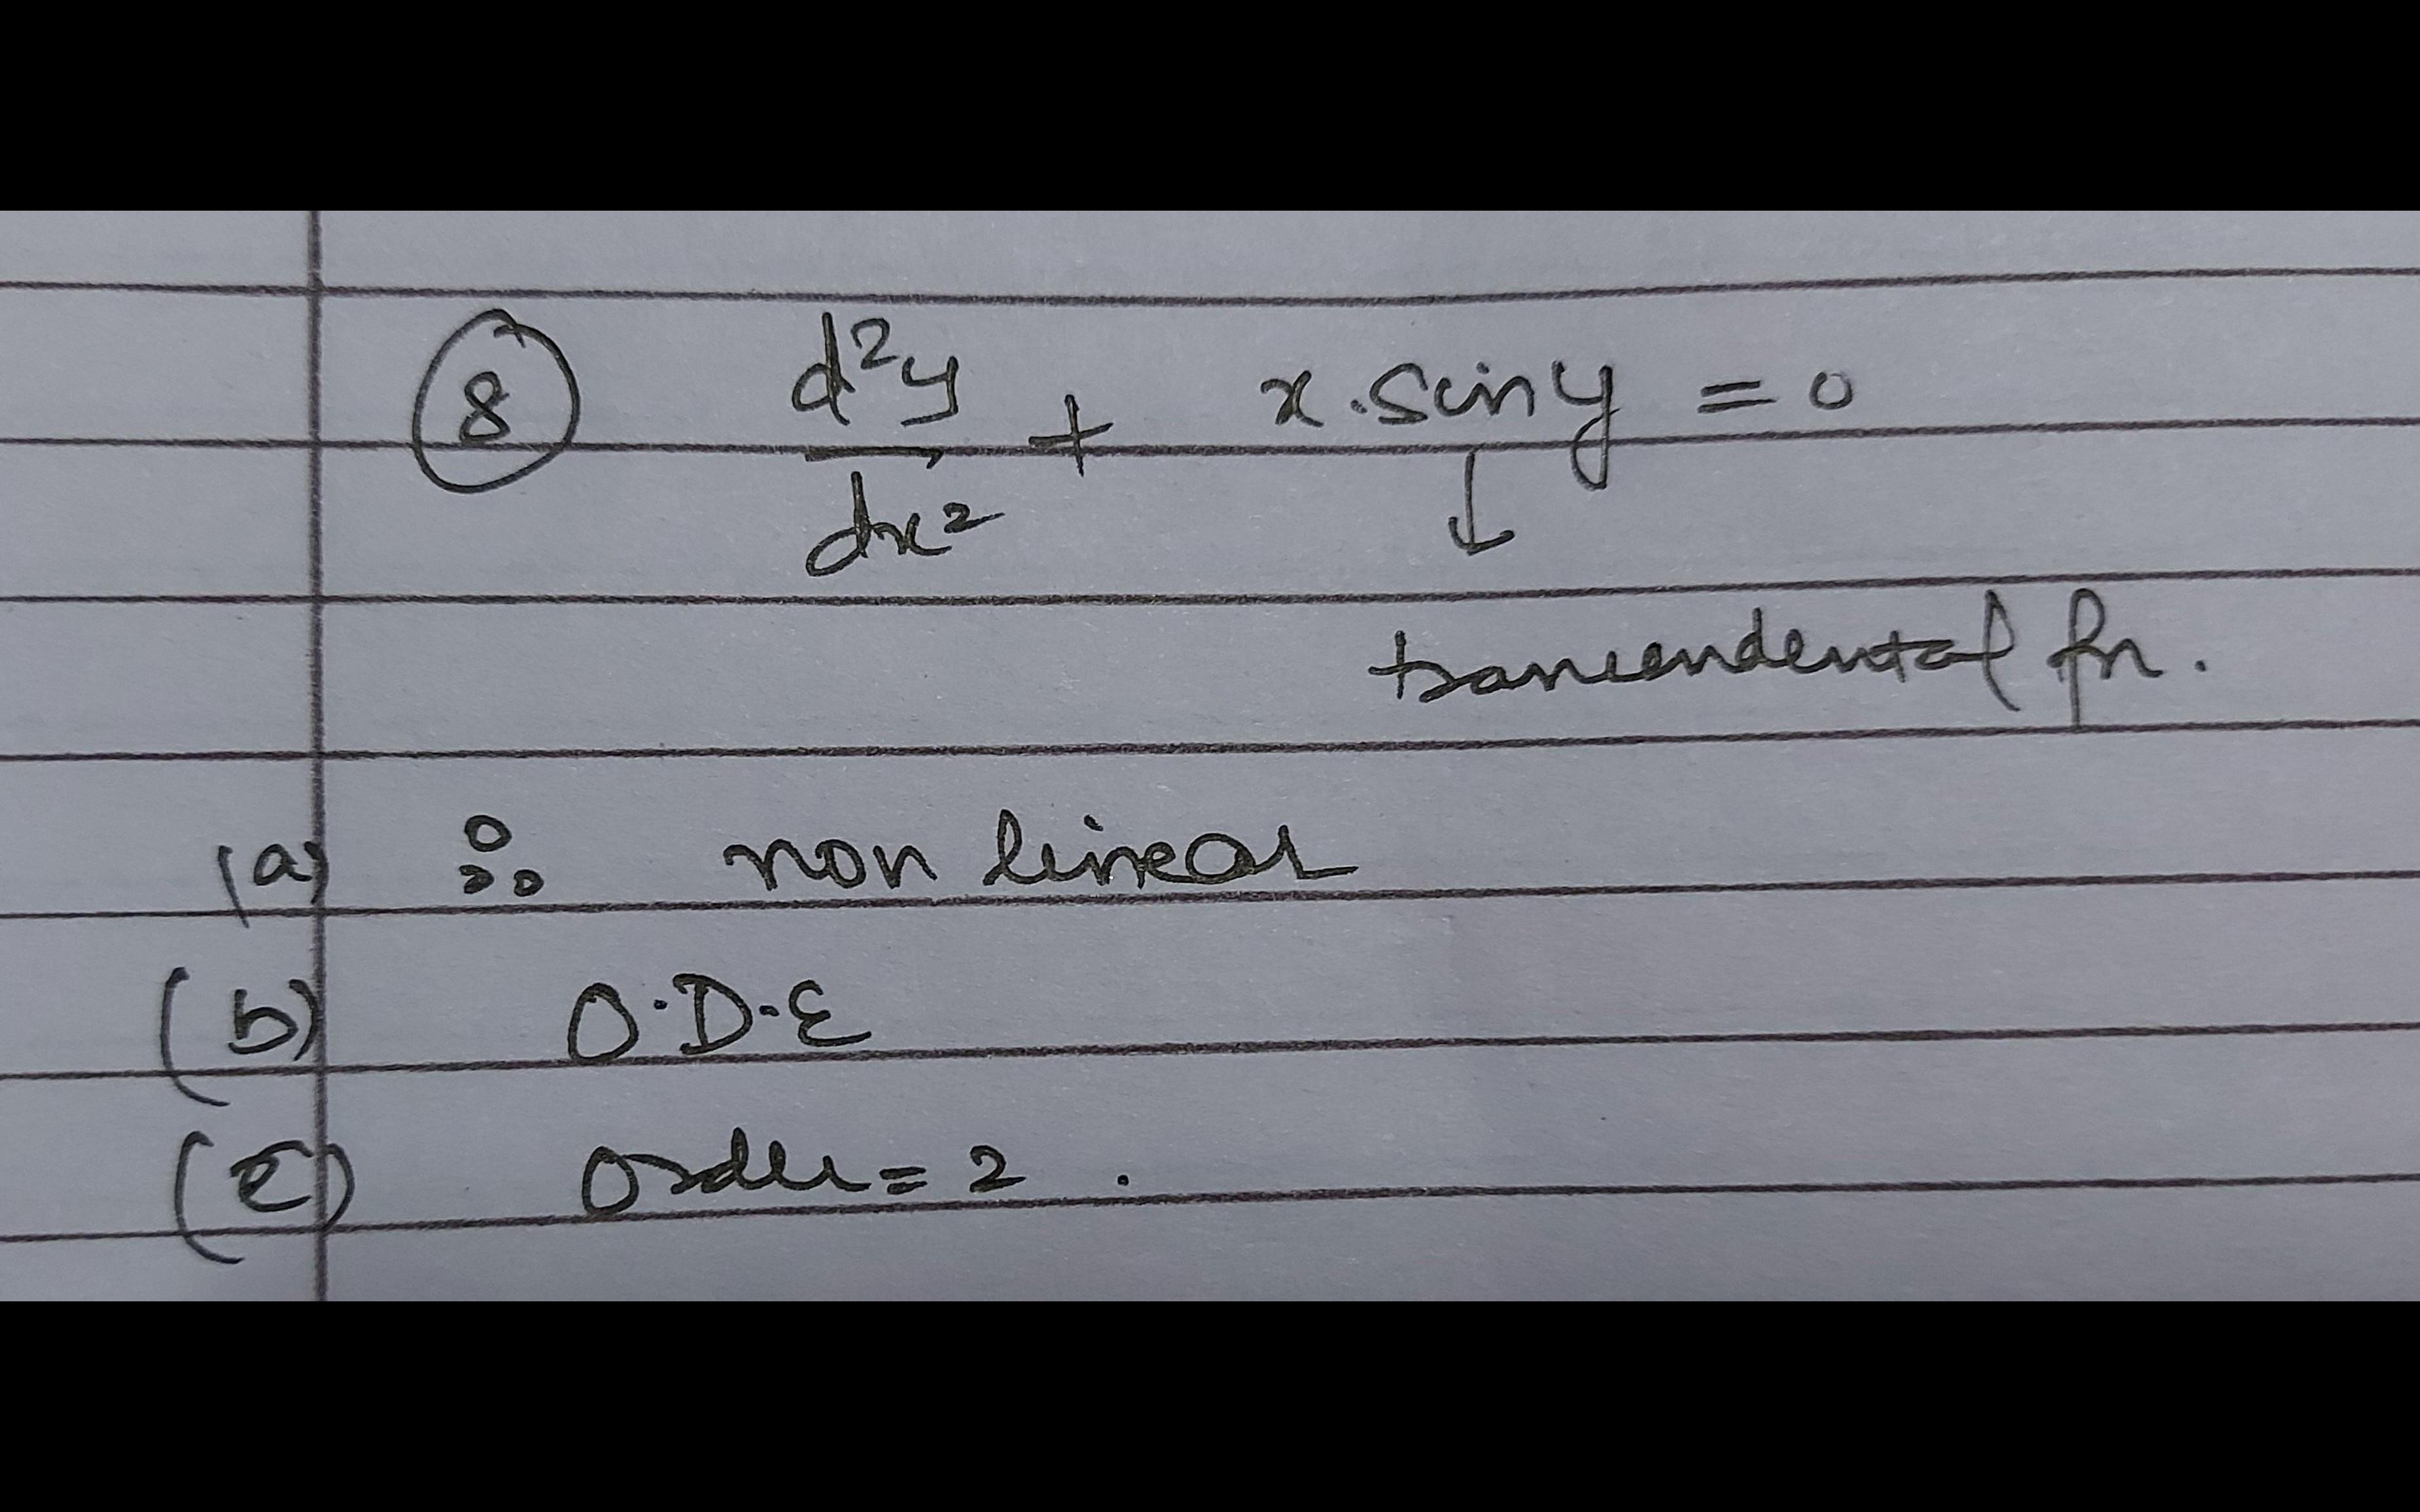 ⑧ d²y/dx² + x.siny = 0
↓
trancendental fn.
(a) ∴ non linear
(b) O.D.E
(c) Order = 2 .